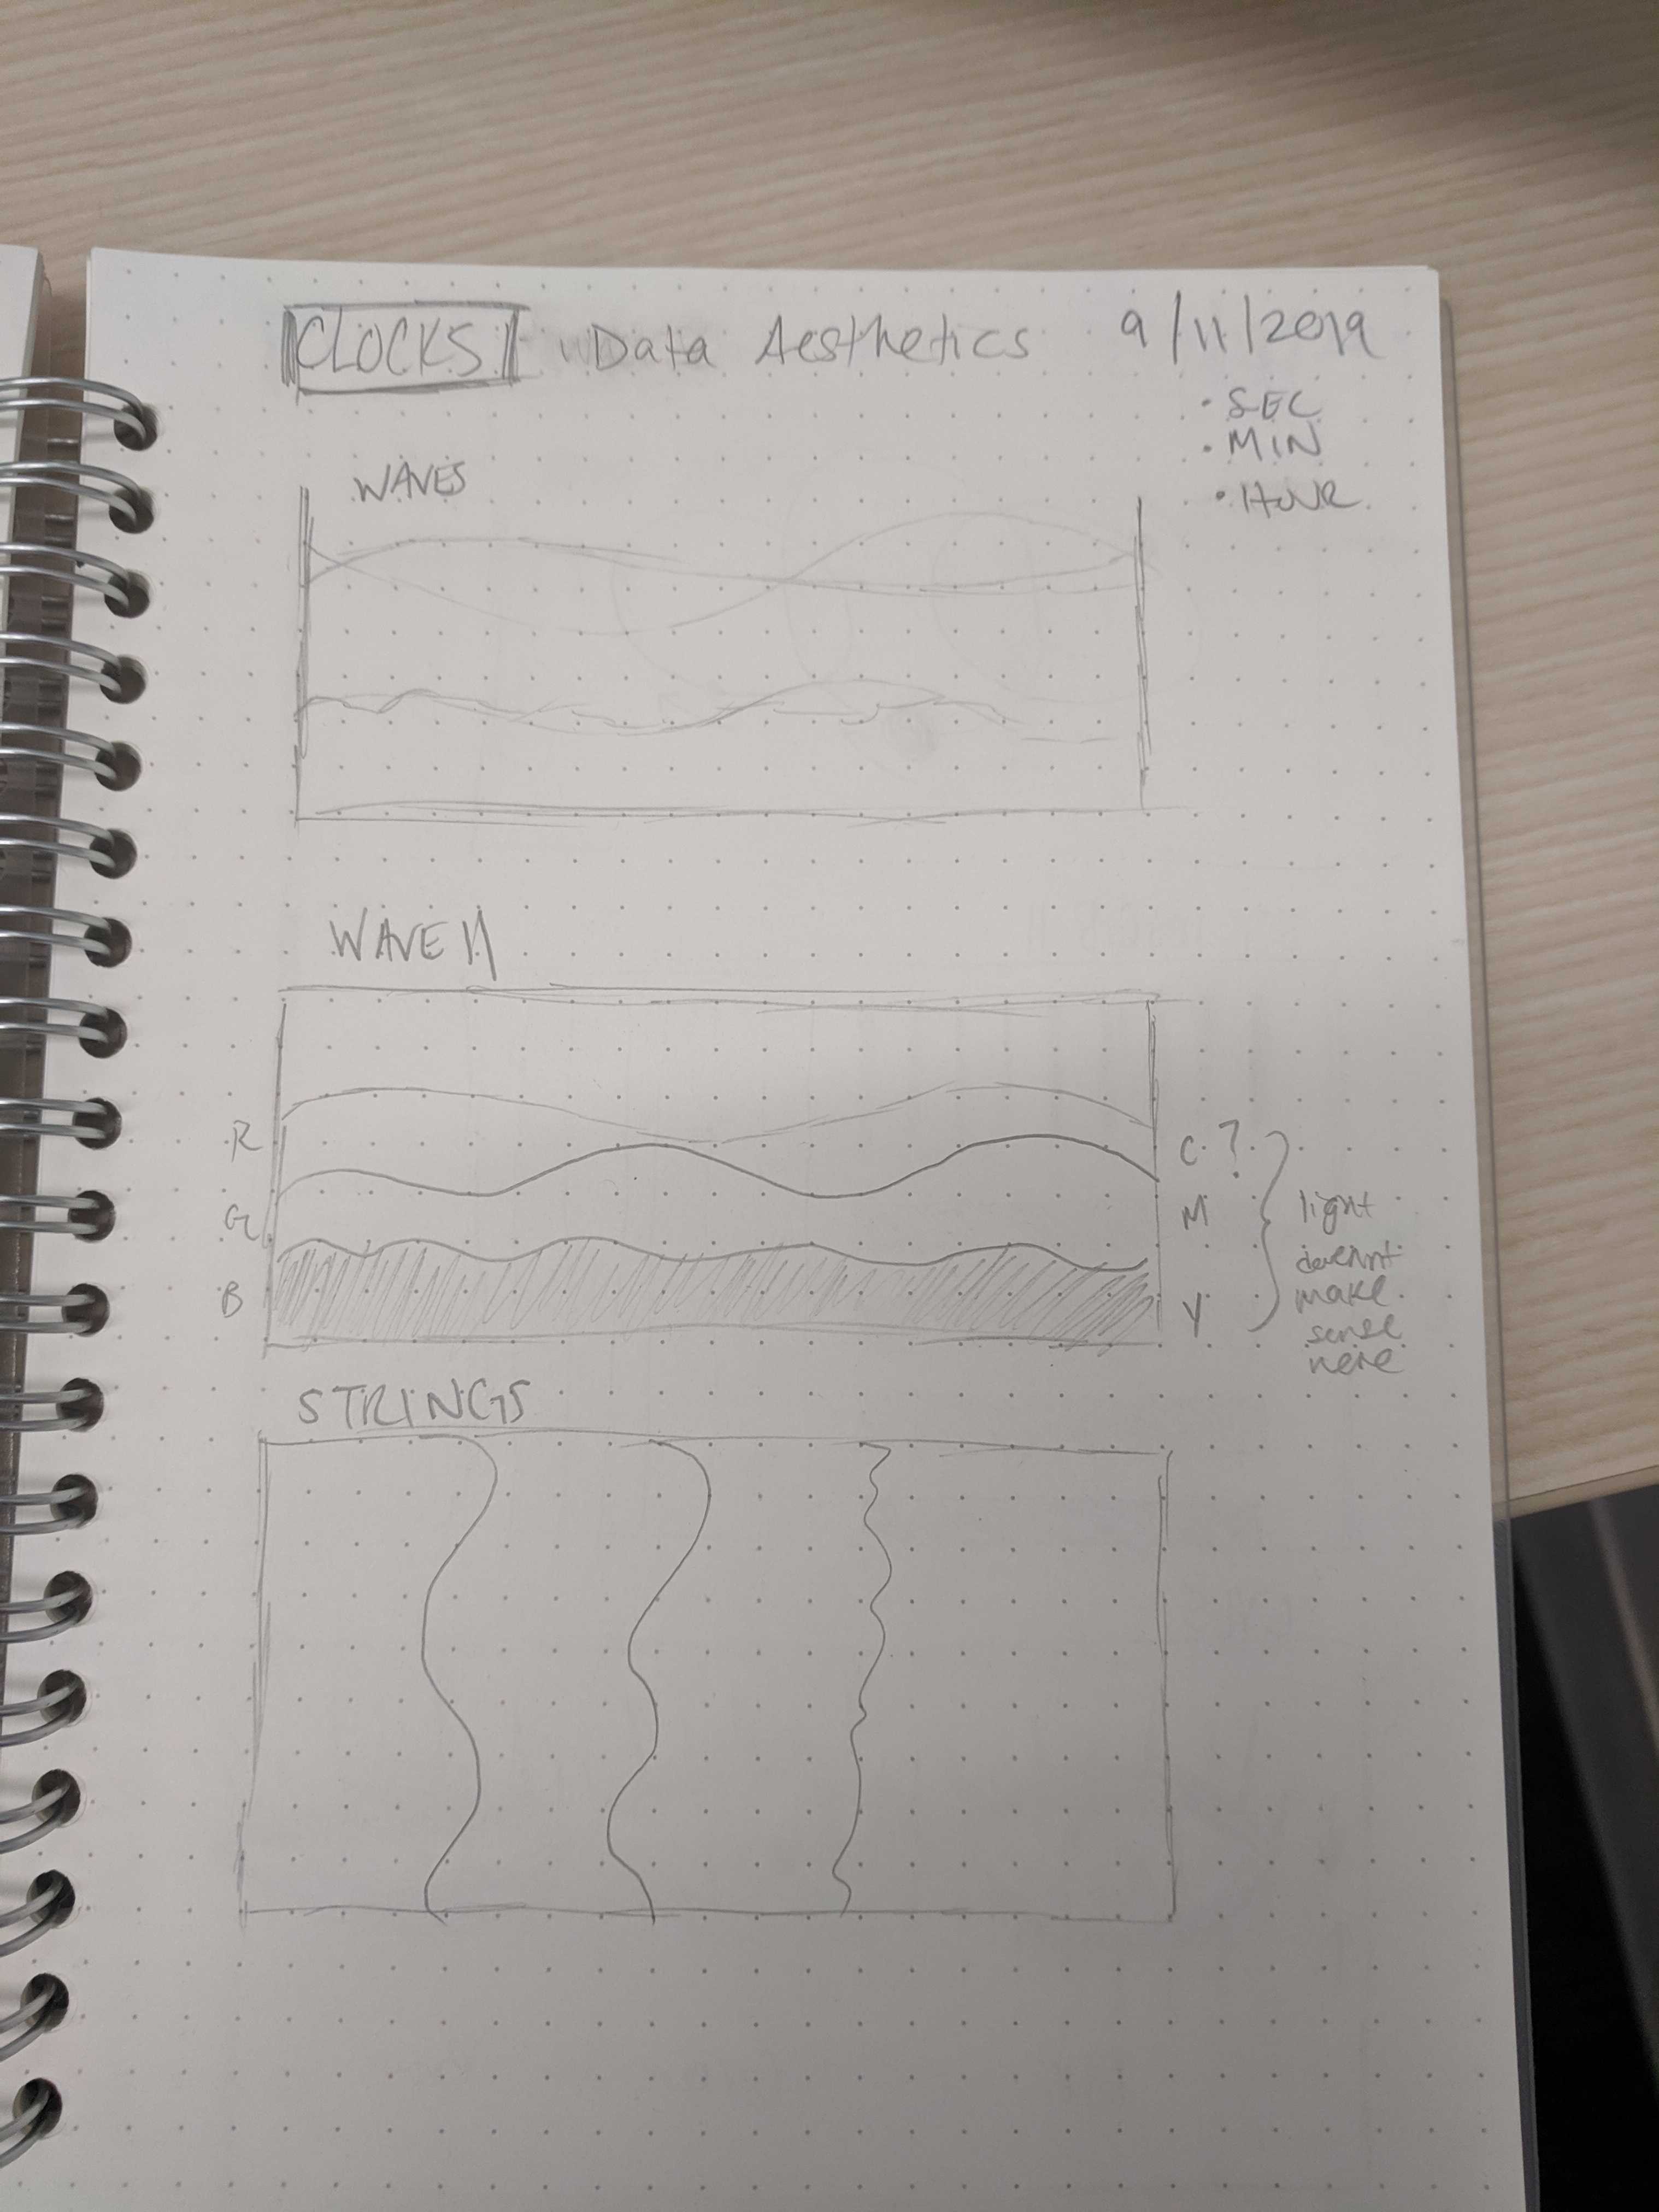 CLOCKS Data Aesthetics 9/11/2019
• SEC
• MIN
• HOUR
WAVES
WAVE II
R
G
B
C ?
M
Y
light
doesn't
make
sense
here
STRINGS